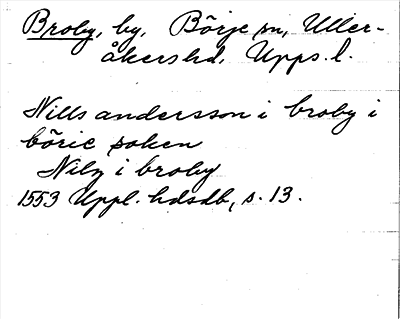 Broby, by, Börje sn, Uller-
åkers hd, Upps. l.
Nills andersson i broby i
börie soken
Nilz i broby
1553 Uppl. hdsdb, s. 13.